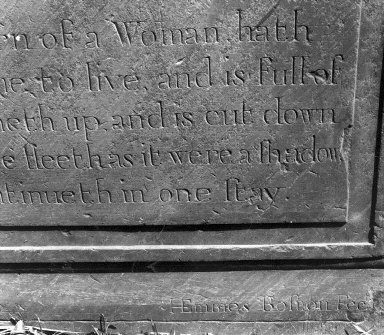 rn of a Woman, hath
me, to live, and is full of
meth up, and is cut down
e fleeth as it were a shadow,
ntinueth in one stay.
Emmes Boston Fec